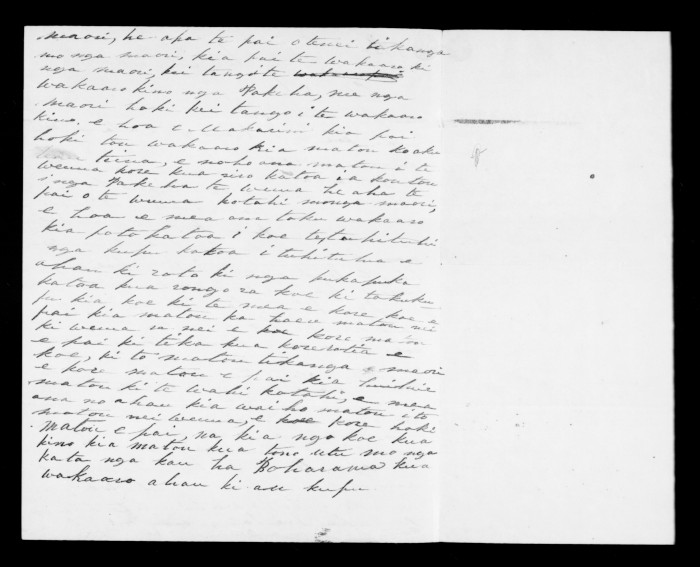 maori, he aha te pai o tenei tikanga
mo nga maori, kia pai te wakaaro ki
nga maori, kei tangote
wakaaro kino nga Pakeha, me nga
maori hoki kei tango i te wakaaro
kino. e hoa e Makarini kia pai
hoki tou wakaaro kia matou ko aku
teina, e noho ana matou i te
wenua kore kua riro katoa ia koutou
i nga Pakeha te wenua he aha te
pai o te wenua kotahi mo nga maori,
e hoa e mea ana toku wakaaro
kia poto katoa i koe te tuhituhi
nga kupu katoa i tuhituhia e
ahau ki roto ki nga pukapuka
katoa kua rongo ra koe ki taku ku
pu kia koe ki te mea e kore koe e
pai kia matou ka haere matou ki
ki wenua ra nei e kore matou
e pai ki teka kua korerotia e
koe, ki to matou tikanga maori
e kore matou e pai kia huihui
matou ki te wahi kotahi, e mea
ana no ahau kia waiho matou i to
matou nei wenua, e kore hoki
matou e pai, na kia ngo koe kua
kino kia matou kua tono utu mo nga
kata nga kau ha Poharama kua
wakaaro ahau ki au kupu